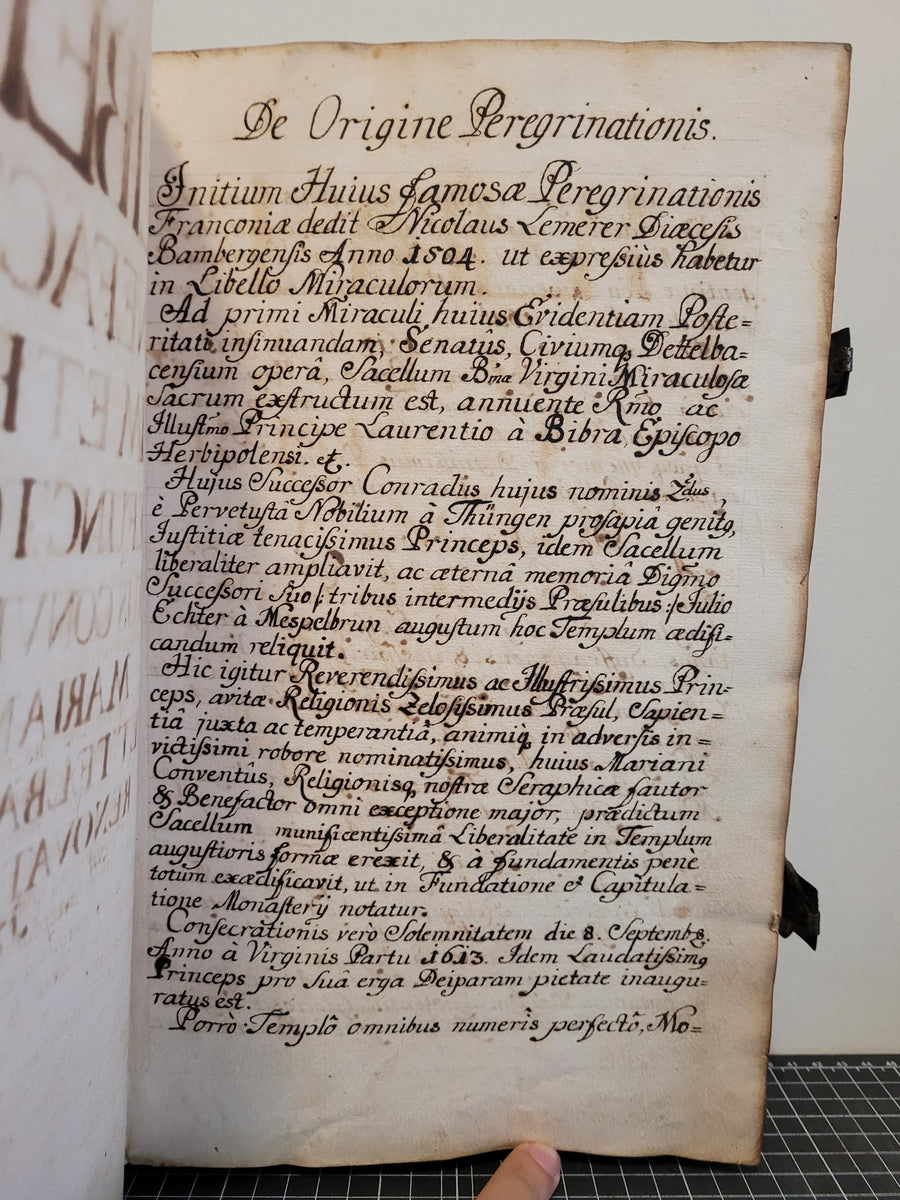 De Origine Peregrinationis.
Initium Huius famosæ Peregrinationis
Franconiæ dedit Nicolaus Lemerer Diæcesis
Bambergensis Anno 1504. ut expressiùs habetur
in Libello Miraculorum.
Ad primi Miraculi huius Evidentiam Poste=
ritati insinuandam, Senatûs, Civiumq Dettelba=
censium operâ, Sacellum Bmæ Virgini Miraculosæ
Sacrum exstructum est, annuente Rmo ac
Illustmo Principe Laurentio à Bibra Episcopo
Herbipolensi. etc.
Hujus Successor Conradus hujus nominis 2dus,
è Pervetustâ Nobilium à Thüngen prosapiâ genitq,
Justitiæ tenacissimus Princeps, idem Sacellum
liberaliter ampliavit, ac æternâ memoriâ Digmo
Successori suo /: tribus intermedijs Præsulibus :/ Julio
Echter à Mespelbrun augustum hoc Templum ædifi=
candum reliquit.
Hic igitur Reverendissimus ac Illustrissimus Prin=
ceps, avitæ Religionis Zelosissimus Præsul, Sapien=
tiâ juxta ac temperantiâ, animiq in adversis in=
victissimi robore nominatissimus, huius Mariani
Conventûs, Religionisq nostræ Seraphicæ fautor
& Benefactor omni exceptione major, prædictum
Sacellum munificentissimâ Liberalitate in Templum
augustioris formæ erexit, & à fundamentis penè
totum exædificavit, ut in Fundatione et Capitula=
tione Monasterij notatur.
Consecrationis verò Solemnitatem die 8. Septembs.
Anno à Virginis Partu 1613. Idem Laudatissimq
Princeps pro suâ erga Deiparam pietate inaugu=
ratus est.
Porrò Templô omnibus numeris perfectô, Mo=